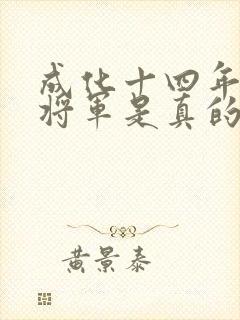 成化十四年
將軍是真的
黄景泰